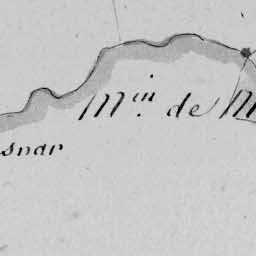 M.in de M
snar